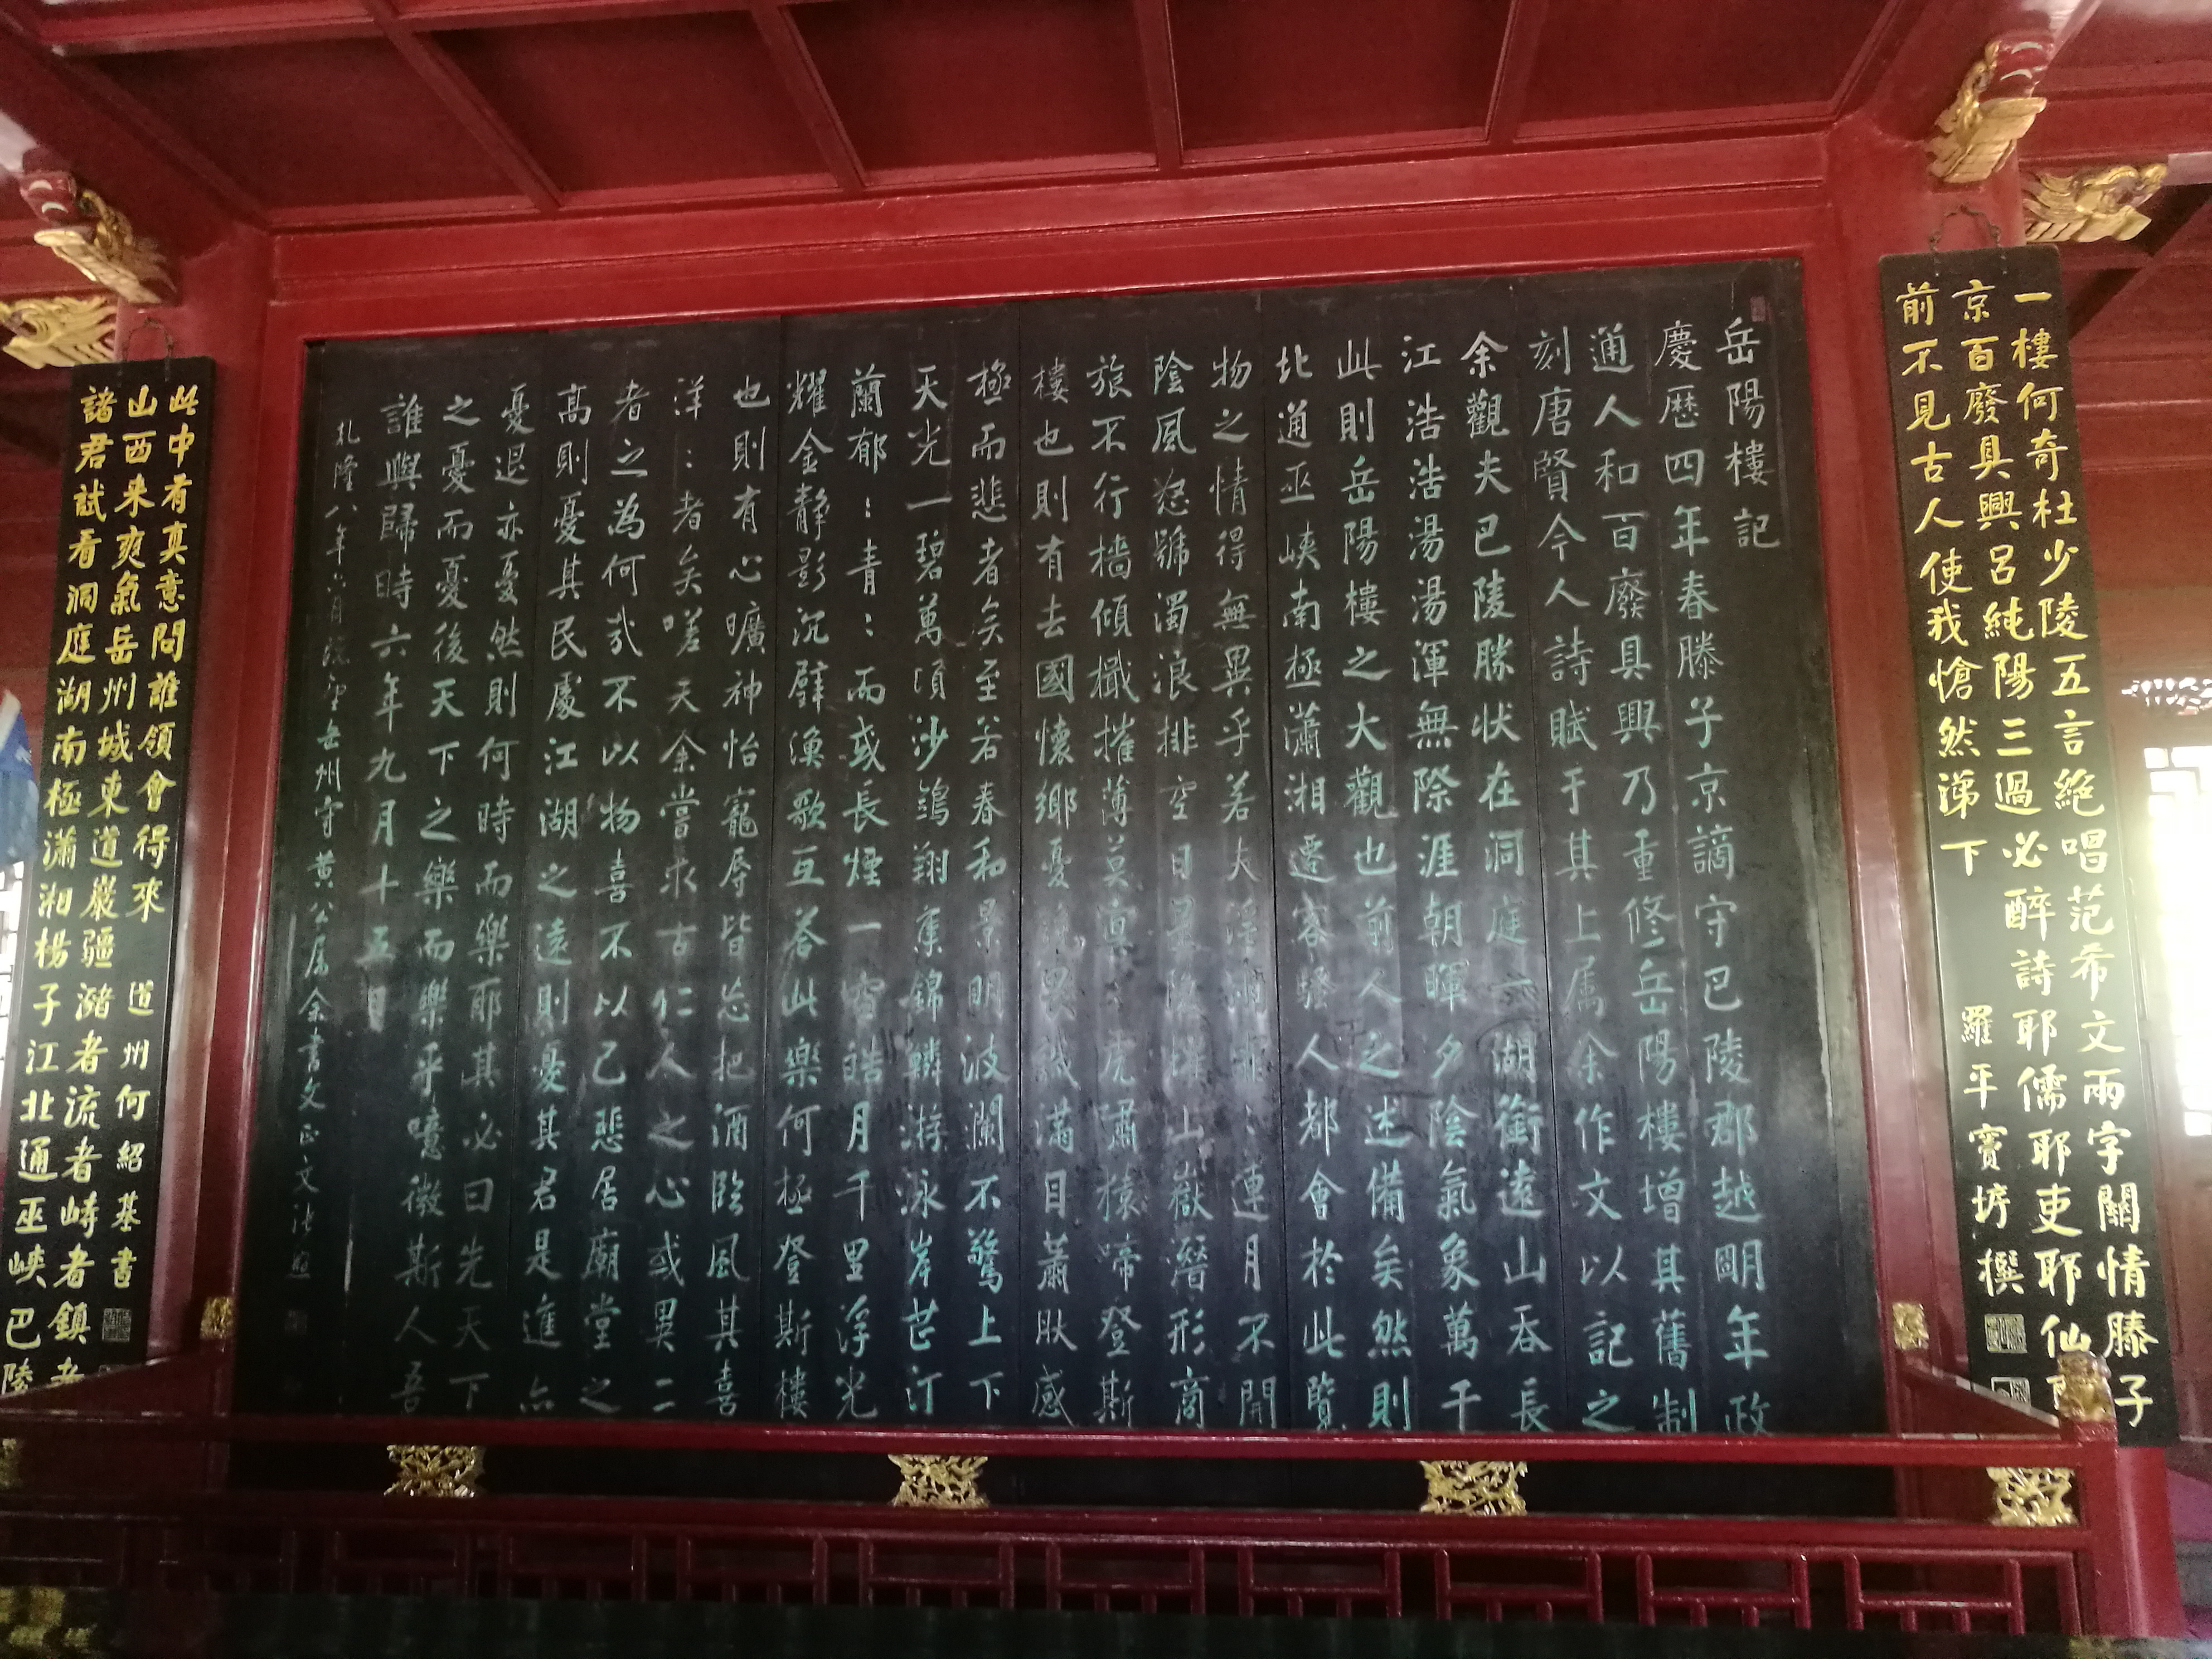 一樓何奇杜少陵五言絕唱范希文兩字關情滕子
京百廢具興呂純陽三過必醉詩耶儒耶吏耶仙耶
前不見古人使我愴然涕下
羅平竇垿撰
岳陽樓記
慶歷四年春滕子京謫守巴陵郡越明年政
通人和百廢具興乃重修岳陽樓增其舊制
刻唐賢今人詩賦于其上属余作文以記之
余觀夫巴陵勝状在洞庭一湖銜遠山吞長
江浩浩湯湯渾無際涯朝暉夕陰氣象萬千
此則岳陽樓之大觀也前人之述備矣然則
北通巫峽南極瀟湘遷客騷人都會於此覽
物之情得無異乎若夫淫雨霏:連月不開
陰風怒號濁浪排空日星隱曜山嶽潛形商
旅不行檣傾檝摧薄暮冥:虎嘯猿啼登斯
樓也則有去國懷鄉憂讒畏譏滿目蕭然感
極而悲者矣至若春和景明波瀾不驚上下
天光一碧萬頃沙鷗翔集錦鱗游泳岸芷汀
蘭郁:青:而或長煙一空皓月千里浮光
耀金静影沉璧漁歌互答此樂何極登斯樓
也則有心曠神怡寵辱皆忘把酒臨風其喜
洋:者矣嗟夫余嘗求古仁人之心或異二
者之為何哉不以物喜不以己悲居廟堂之
高則憂其民處江湖之遠則憂其君是進亦
憂退亦憂然則何時而樂耶其必曰先天下
之憂而憂後天下之樂而樂乎噫微斯人吾
誰與歸時六年九月十五日
乾隆八年六月岳州守黄公属余書文正文張照
諸君試看洞庭湖南極瀟湘楊子江北通巫峽巴陵
山西来爽氣岳州城東道巖疆瀦者流者峙者鎮者
此中有真意問誰領會得來
道州何紹基書